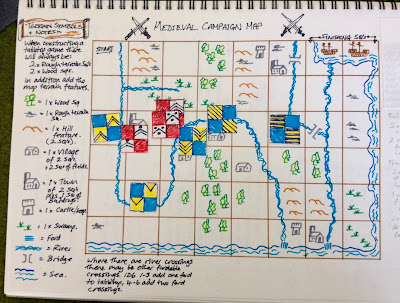 Terrain Symbols
+ Notes:-
Medieval Campaign Map
Finishing Sqs.
START
When constructing a
tabletop game there
will always be:
2 x Rough terrain Sqs
2 x Wood Sqs.
In addition add the
map terrain features.
= 1 x Wood Sq.
= 1 x Rough terrain
Sq.
= 1 x Hill
feature.
(2 Sqs).
= 1 x Village
of 2 Sqs
+ 2 Sqs of fields.
= 1 x Town
of 2 Sqs
plus 1 Sq of
= 1 x Castle/keep
= 1 x Swamp.
= Ford
= River
= Bridge
= Sea.
Where there are river crossings
there may be other fordable
crossings. 1D6 1-3 add one ford
to tabletop, 4-6 add two ford
crossings.